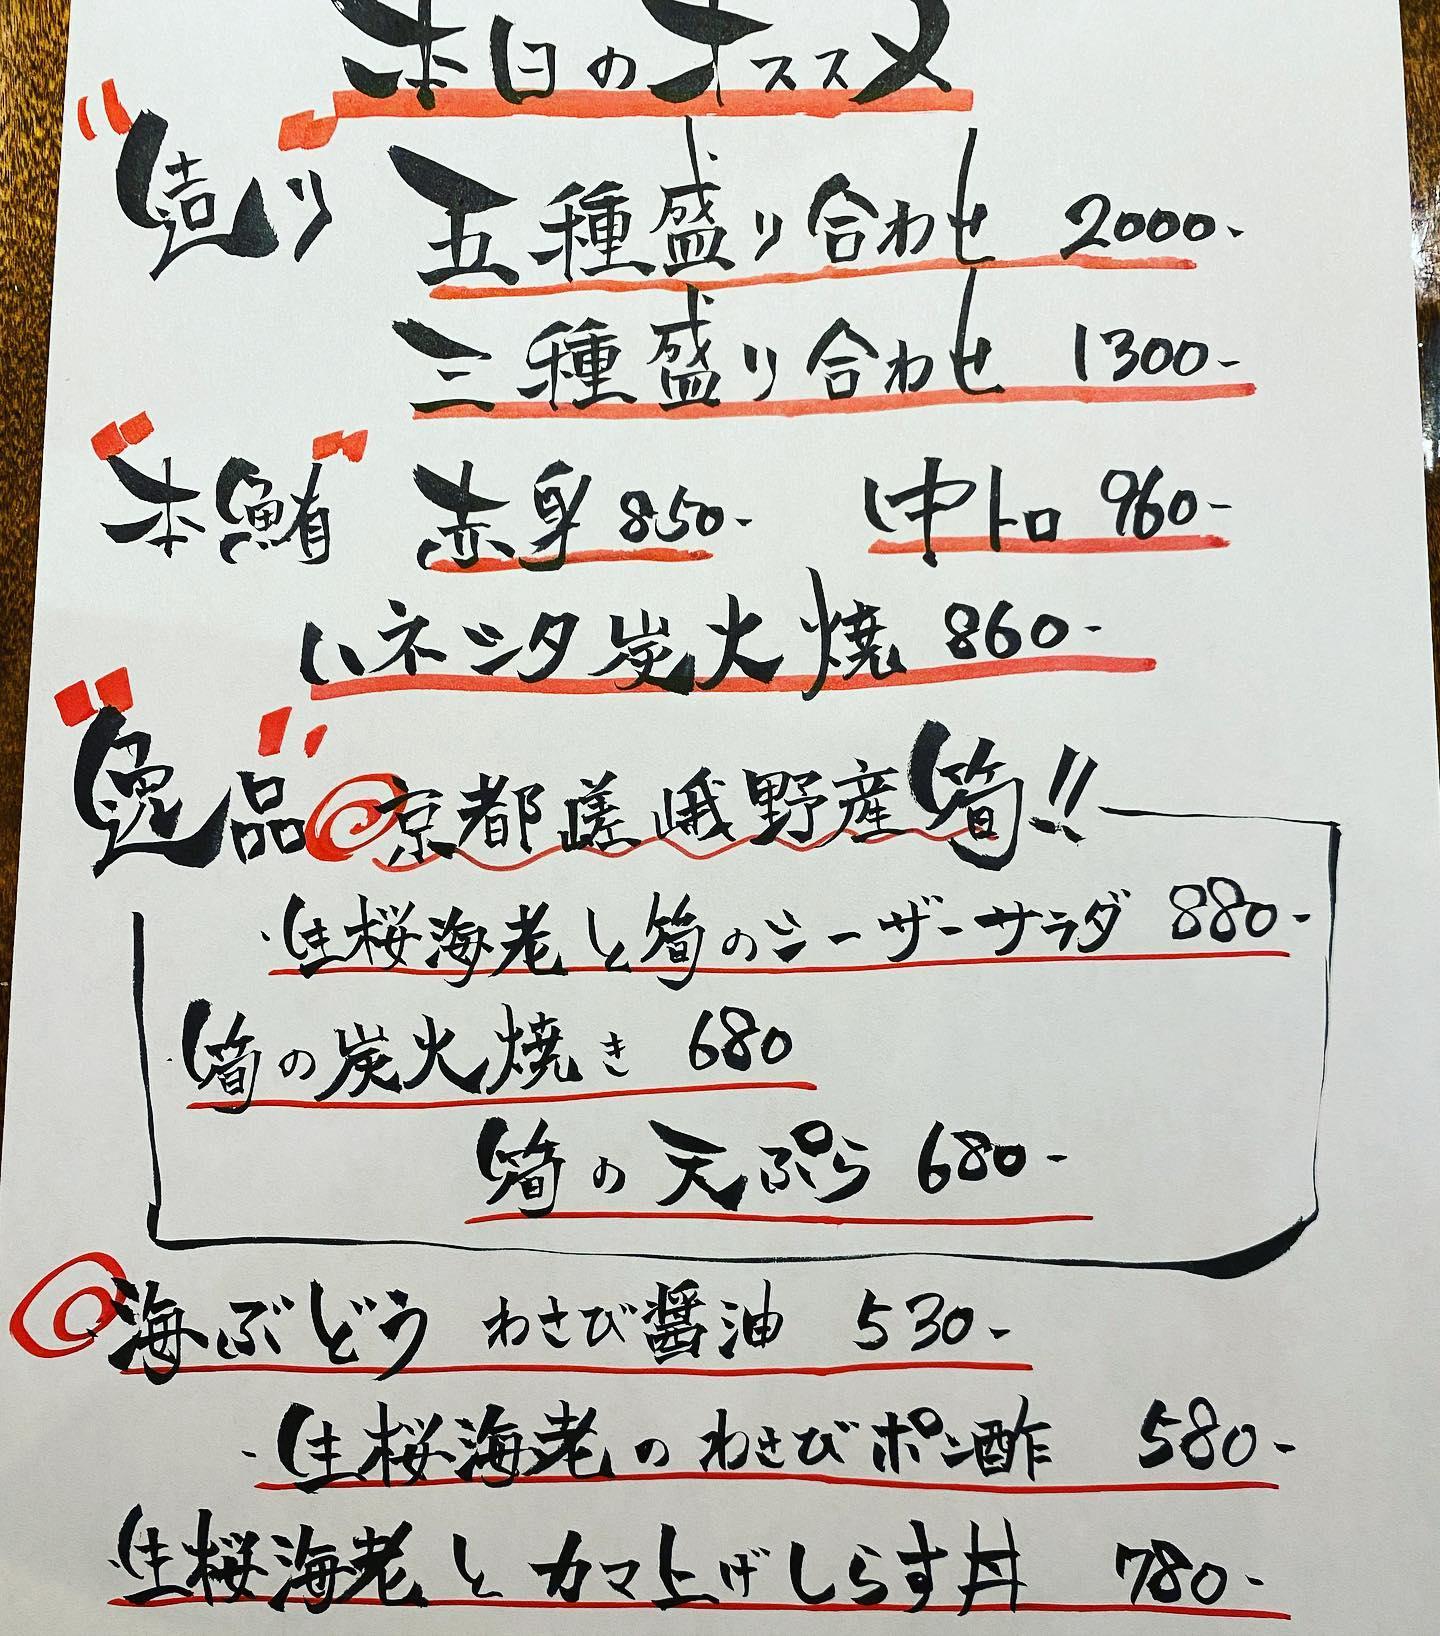 本日のオススメ
"造り" 五種盛り合わせ 2000-
三種盛り合わせ 1300-
"本鮪" 赤身 850- 中トロ 960-
ハネシタ炭火焼 860-
"逸品" 京都嵯峨野産筍!!
・生桜海老と筍のシーザーサラダ 880-
・筍の炭火焼き 680
筍の天ぷら 680-
海ぶどう わさび醤油 530-
・生桜海老のわさびポン酢 580-
・生桜海老とカマ上げしらす丼 780-